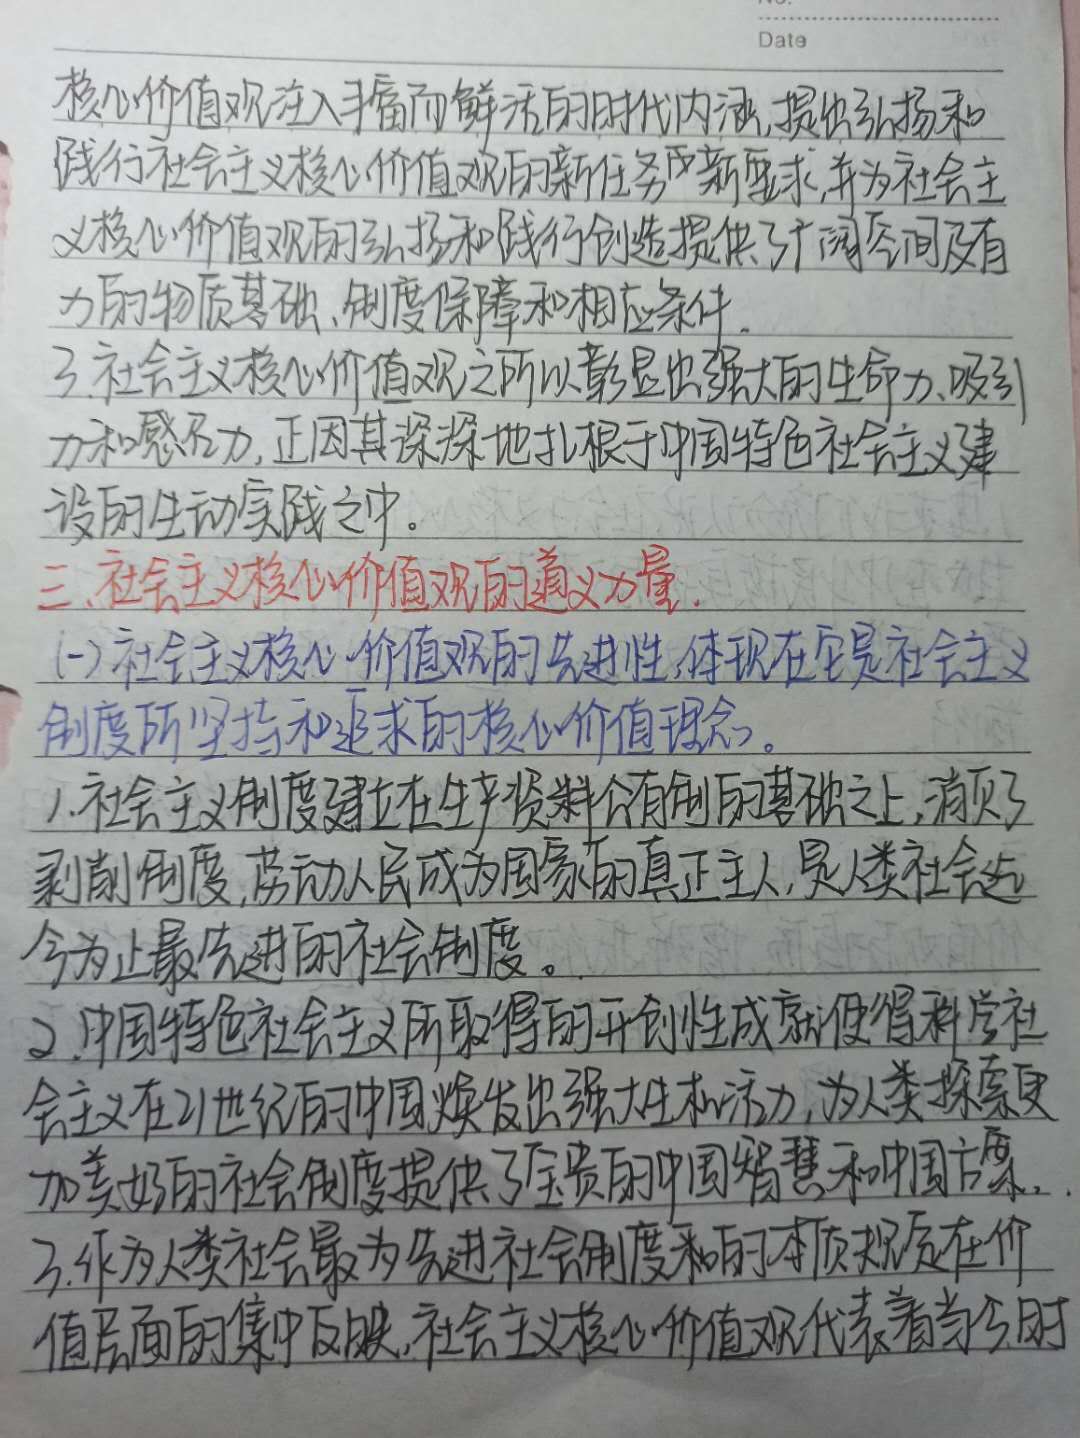 No.
Date
核心价值观注入丰富而鲜活的时代内涵,提出弘扬和
践行社会主义核心价值观的新任务和新要求,并为社会主
义核心价值观的弘扬和践行创造提供了广阔空间及有
力的物质基础、制度保障和相应条件.
3.社会主义核心价值观之所以彰显出强大的生命力、吸引
力和感召力,正因其深深地扎根于中国特色社会主义建
设的生动实践之中。
三、社会主义核心价值观的道义力量.
(一)社会主义核心价值观的先进性,体现在它是社会主义
制度所坚持和追求的核心价值理念。
1.社会主义制度建立在生产资料公有制的基础之上,消灭了
剥削制度,劳动人民成为国家的真正主人,是人类社会迄
今为止最先进的社会制度。
2.中国特色社会主义所取得的开创性成就使得科学社
会主义在21世纪的中国焕发出强大生机活力,为人类探索更
加美好的社会制度提供了宝贵的中国智慧和中国方案.
3.作为人类社会最为先进社会制度和的本质规定在价
值层面的集中反映,社会主义核心价值观代表着当今时